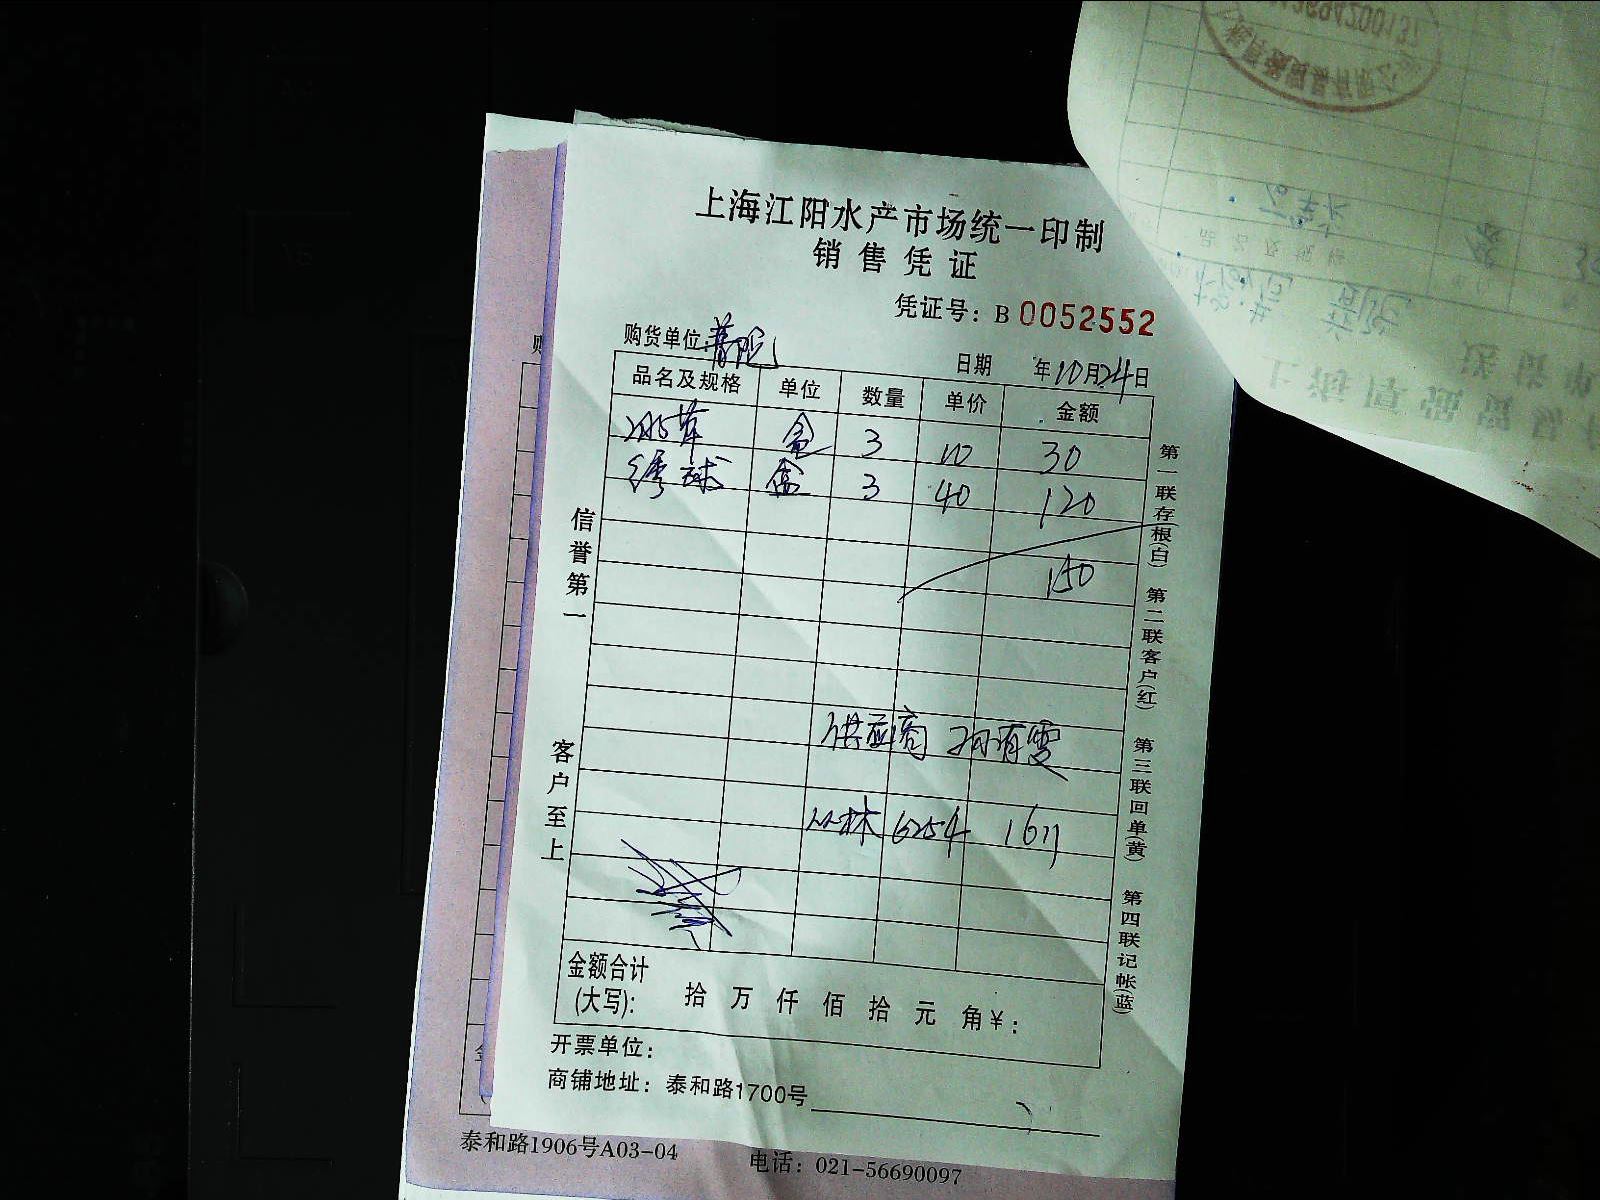 上海江阳水产市场统一印制
销售凭证
凭证号：B 0052552
购货单位：普陀
日期 年10月24日
品名及规格 单位 数量 单价 金额
草 盒 3 10 30
绣球 盒 3 40 120
150
供应商 孙有雯
丛林 6254 1671
信誉第一
客户至上
第一联存根(白) 第二联客户(红) 第三联回单(黄) 第四联记帐(蓝)
金额合计
(大写)： 拾 万 仟 佰 拾 元 角¥：
开票单位：
商铺地址：泰和路1700号
泰和路1906号A03-04 电话：021-56690097